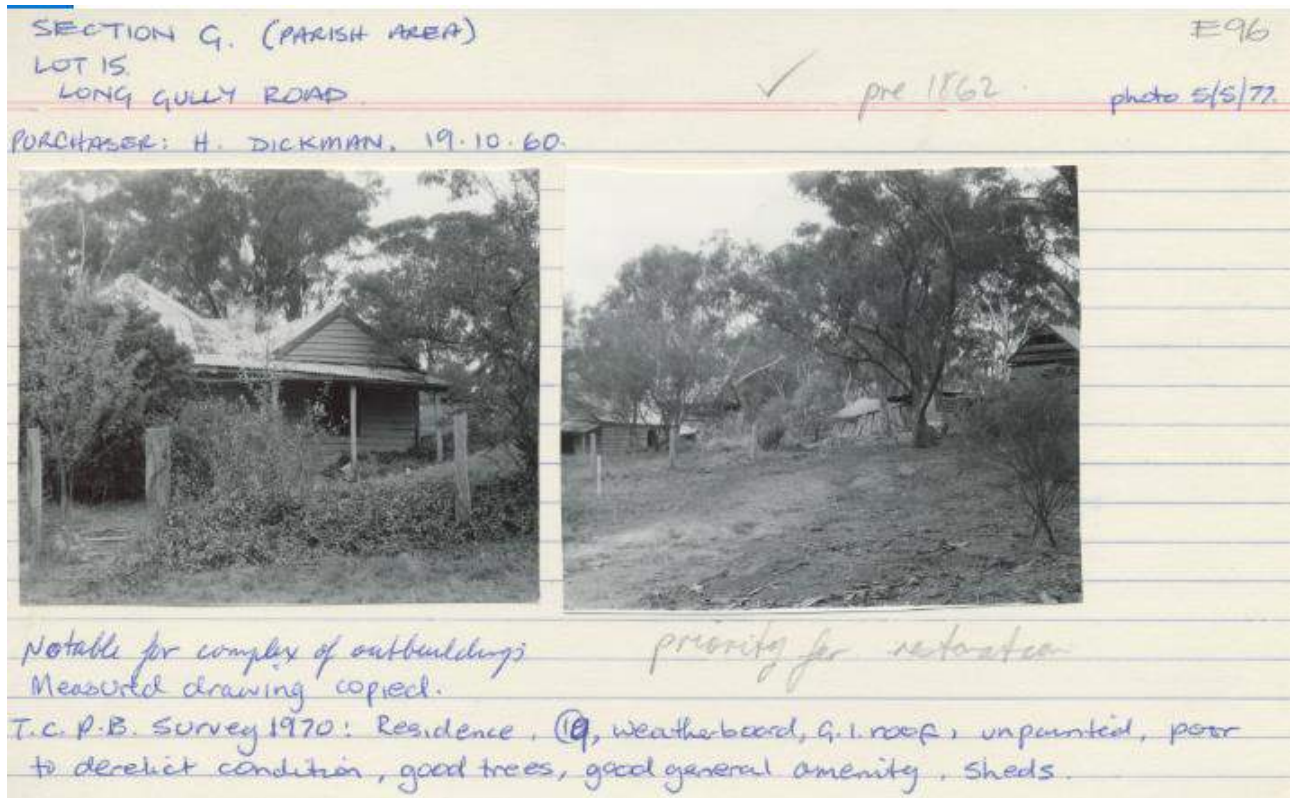 SECTION G. (PARISH AREA)
E96
LOT 15.
LONG GULLY ROAD.
✓ pre 1862.
photo 5/5/77.
PURCHASER: H. DICKMAN. 19.10.60.
Notable for complex of outbuildings
priority for restoration
Measured drawing copied.
T.C.P.B. Survey 1970: Residence, 19, weatherboard, G.I. roof, unpainted, poor
to derelict condition, good trees, good general amenity, sheds.